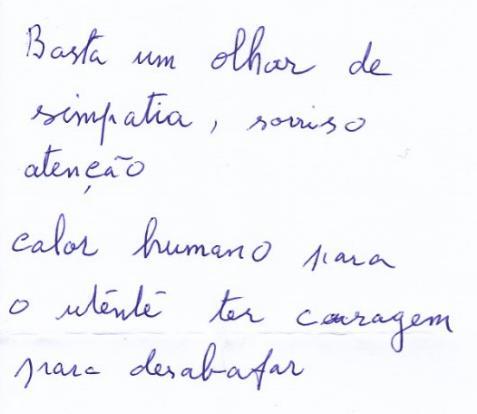 Basta um olhar de
simpatia, sorriso
atenção
calor humano para
o utente ter coragem
para desabafar